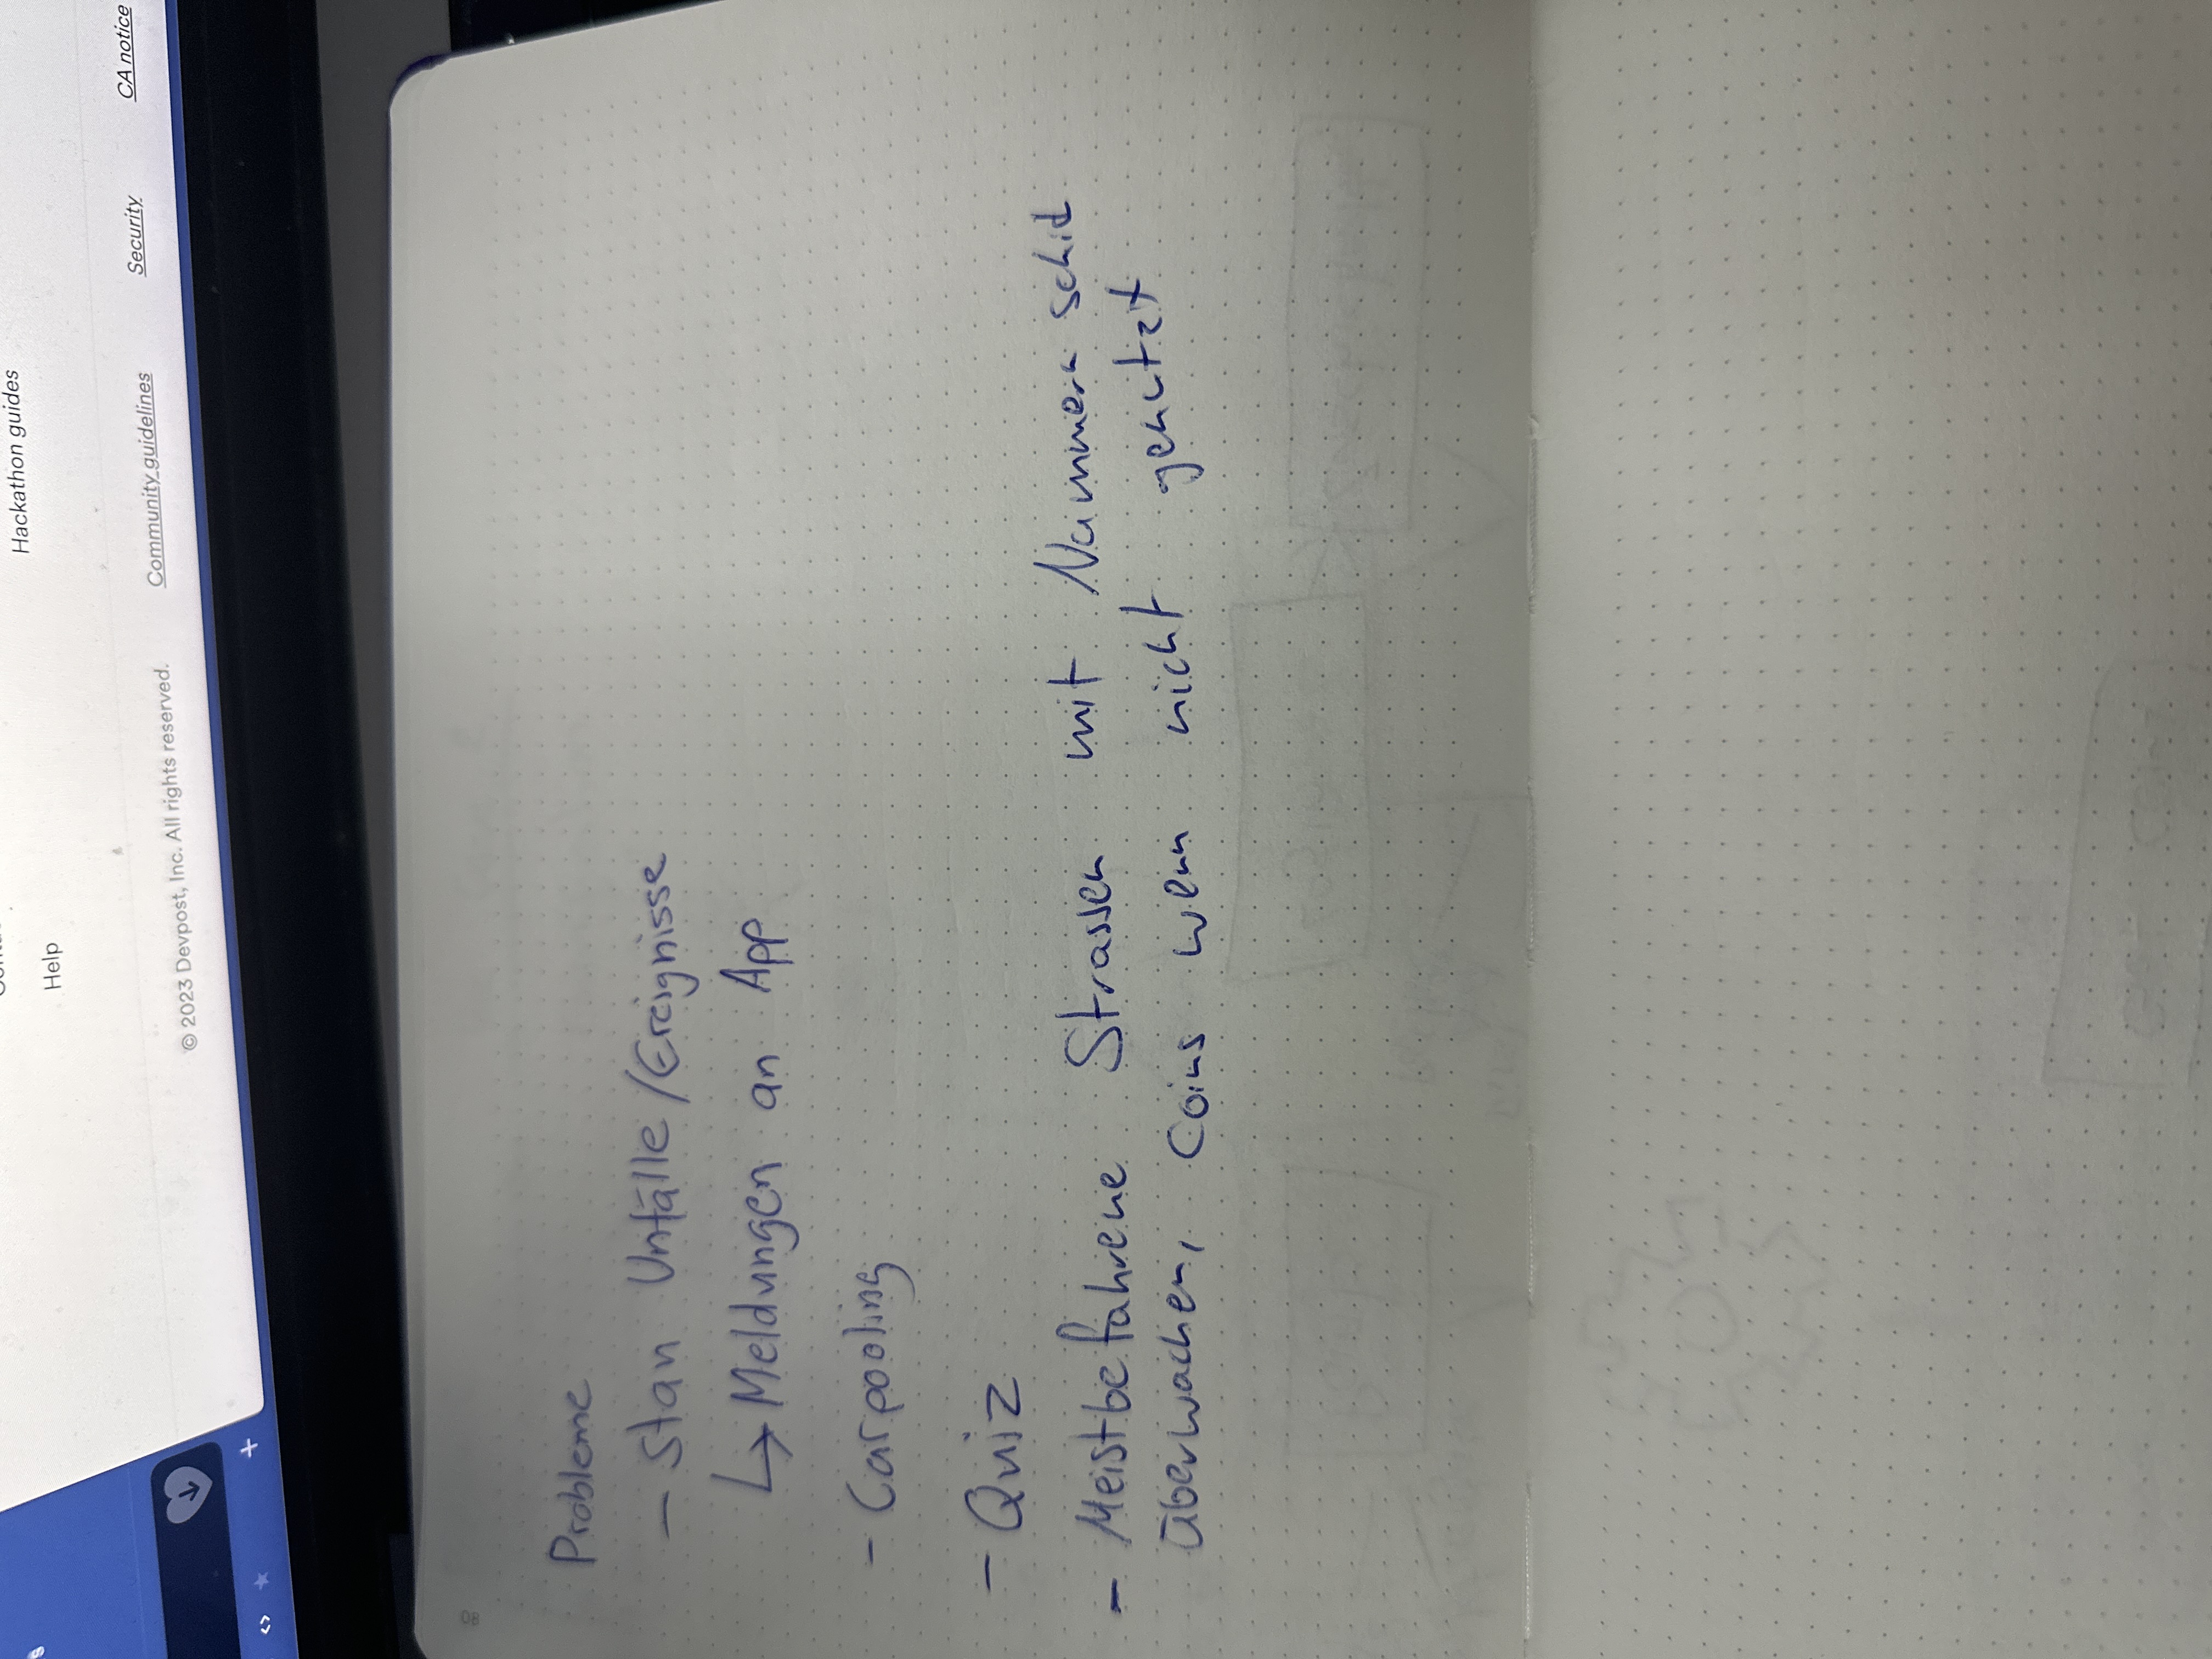 Hackathon guides
Help
© 2023 Devpost, Inc. All rights reserved.
Community guidelines
Security
CA notice
08
Probleme
- Stan Unfälle/Ereignisse
↳ Meldungen an App
- Carpooling
- Quiz
- Meistbefahrene Strassen mit Nummern schid
überwachen, Coins wenn nicht genutzt